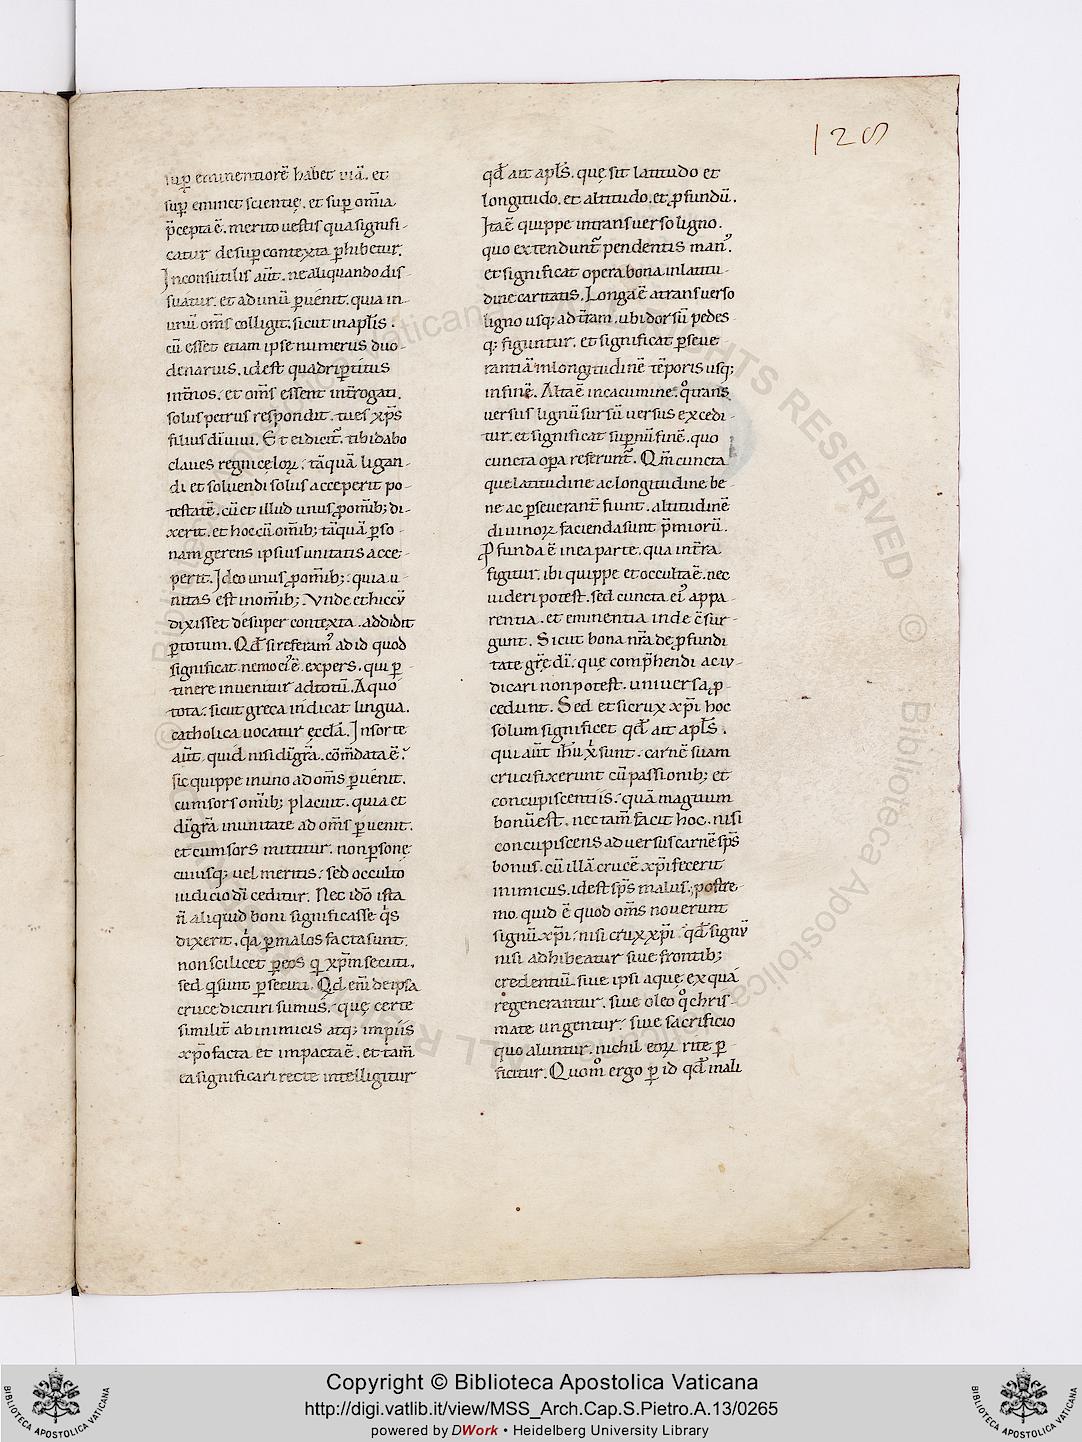 128
sup̄ eminentiorē habet uiā. et
sup̄ eminet scientię. et sup̄ om̄ia
p̄cepta ē. merito uestis qua signifi-
catur desup̄ contexta p̄hibetur.
Inconsutilis aut̄. ne aliquando dis-
suatur. et ad unū p̄uenit. quia in
unū om̄s colligit. sicut in apl̄is.
cū esset etiam ipse numerus duo-
denarius. idest quadrip̄titus
int̄nos. et om̄s essent int̄rogati.
solus petrus respondit. tu es xp̄s
filius dī uiui. Et ei dicit᷑. tibi dabo
claues regni cęloꝝ. tāquā ligan-
di et soluendi solus acceperit po-
testatē. cū et illud unus ꝓ omīb; di-
xerit. et hoc cū omīb; tāquā p̄so-
nam gerens ipsius unitatis acce-
perit. Ideo unus ꝓ omīb;. quia u-
nitas est in omīb; Vnde et hic cū
dixisset desuper contexta. addidit
p̄ totum. Qd̄ si referam᷒ ad id quod
significat. nemo ei᷒ ē expers. qui p̄-
tinere inuenitur ad totū. A quo
toto. sicut greca indicat lingua.
catholica uocatur ęcclā. In sorte
aut̄ quid nisi dī gr̄a. cōmdata ē.
sic quippe in uno ad om̄s p̄uenit.
cum sors omīb; placuit. quia et
dī gr̄a in unitate ad om̄s p̄uenit.
et cum sors mittitur. non p̄sonę
cuiusq; uel meritis. sed occulto
iudicio dī ceditur. Nec idō ista
n̄ aliquid boni significasse q̇s
dixerit. q̇a p̄ malos facta sunt.
non scilicet p̄ eos q̇ xp̄m secuti.
sed q̇ sunt p̄secuti. Qd̄ em̄ de ipsa
cruce dicturi sumus. quę certe
similit̄ ab inimicis atq; impiis
xp̄o facta et impacta ē. et tam̄
ea significari recte intelligitur
qd̄ ait apl̄s. quę sit latitudo et
longitudo. et altitudo. et ꝓfundū.
Ita ē quippe in transuerso ligno.
quo extendunt᷑ pendentis man᷒.
et significat opera bona in latitu-
dine caritatis. Longa ē a transuerso
ligno usq; ad t̄ram. ubi dorsū pedes-
q; figuntur. et significat p̄seue
rantiā in longitudinē tēporis usq;
in finē. Alta ē in cacumine. q̊ trans
uersus lignū sursū uersus excedi-
tur. et significat sup̄nū finē. quo
cuncta op̄a referunt᷑. Qm̄ cuncta
que latitudine ac longitudine be-
ne ac p̄seuerant̄ fiunt. altitudinē
diuinoꝝ facienda sunt p̄mioꝝ.
Ꝓfunda ē in ea parte. qua in t̄ra
figitur. ibi quippe et occulta ē. nec
uideri potest. sed cuncta ei᷒ appa-
rentia. et eminentia inde c̄sur-
gunt. Sicut bona nr̄a de ꝓfundi
tate gr̄ę dī. quę comp̄hendi ac iu-
dicari non potest. uniuersa ꝓ-
cedunt. Sed et si crux xp̄i hoc
solum significet qd̄ ait apl̄s.
qui aut̄ ih̄u xp̄i sunt. carnē suam
crucifixerunt cū passionib; et
concupiscentiis. quā magnum
bonū est. nec tam̄ facit hoc. nisi
concupiscens aduersus carnē sp̄s
bonus. cū illā crucē xp̄i fecerit
inimicus. idest sp̄s malus. postre-
mo. quid ē quod om̄s nouerunt
signū xp̄i. nisi crux xp̄i qd̄ signū
nisi adhibeatur siue frontib;
credentiū. siue ipsi aque. ex qua
regenerantur. siue oleo q̊ chris-
mate unguentur. siue sacrificio
quo aluntur. nichil eoꝝ rite p̄-
ficitur. Quom̊ ergo p̄ id qd̄ mali
Copyright © Biblioteca Apostolica Vaticana
http://digi.vatlib.it/view/MSS_Arch.Cap.S.Pietro.A.13/0265
powered by DWork • Heidelberg University Library
BIBLIOTECA APOSTOLICA VATICANA
BIBLIOTECA APOSTOLICA VATICANA
© Biblioteca Apostolica Vaticana ALL RIGHTS RESERVED
© Biblioteca Apostolica Vaticana ALL RIGHTS RESERVED